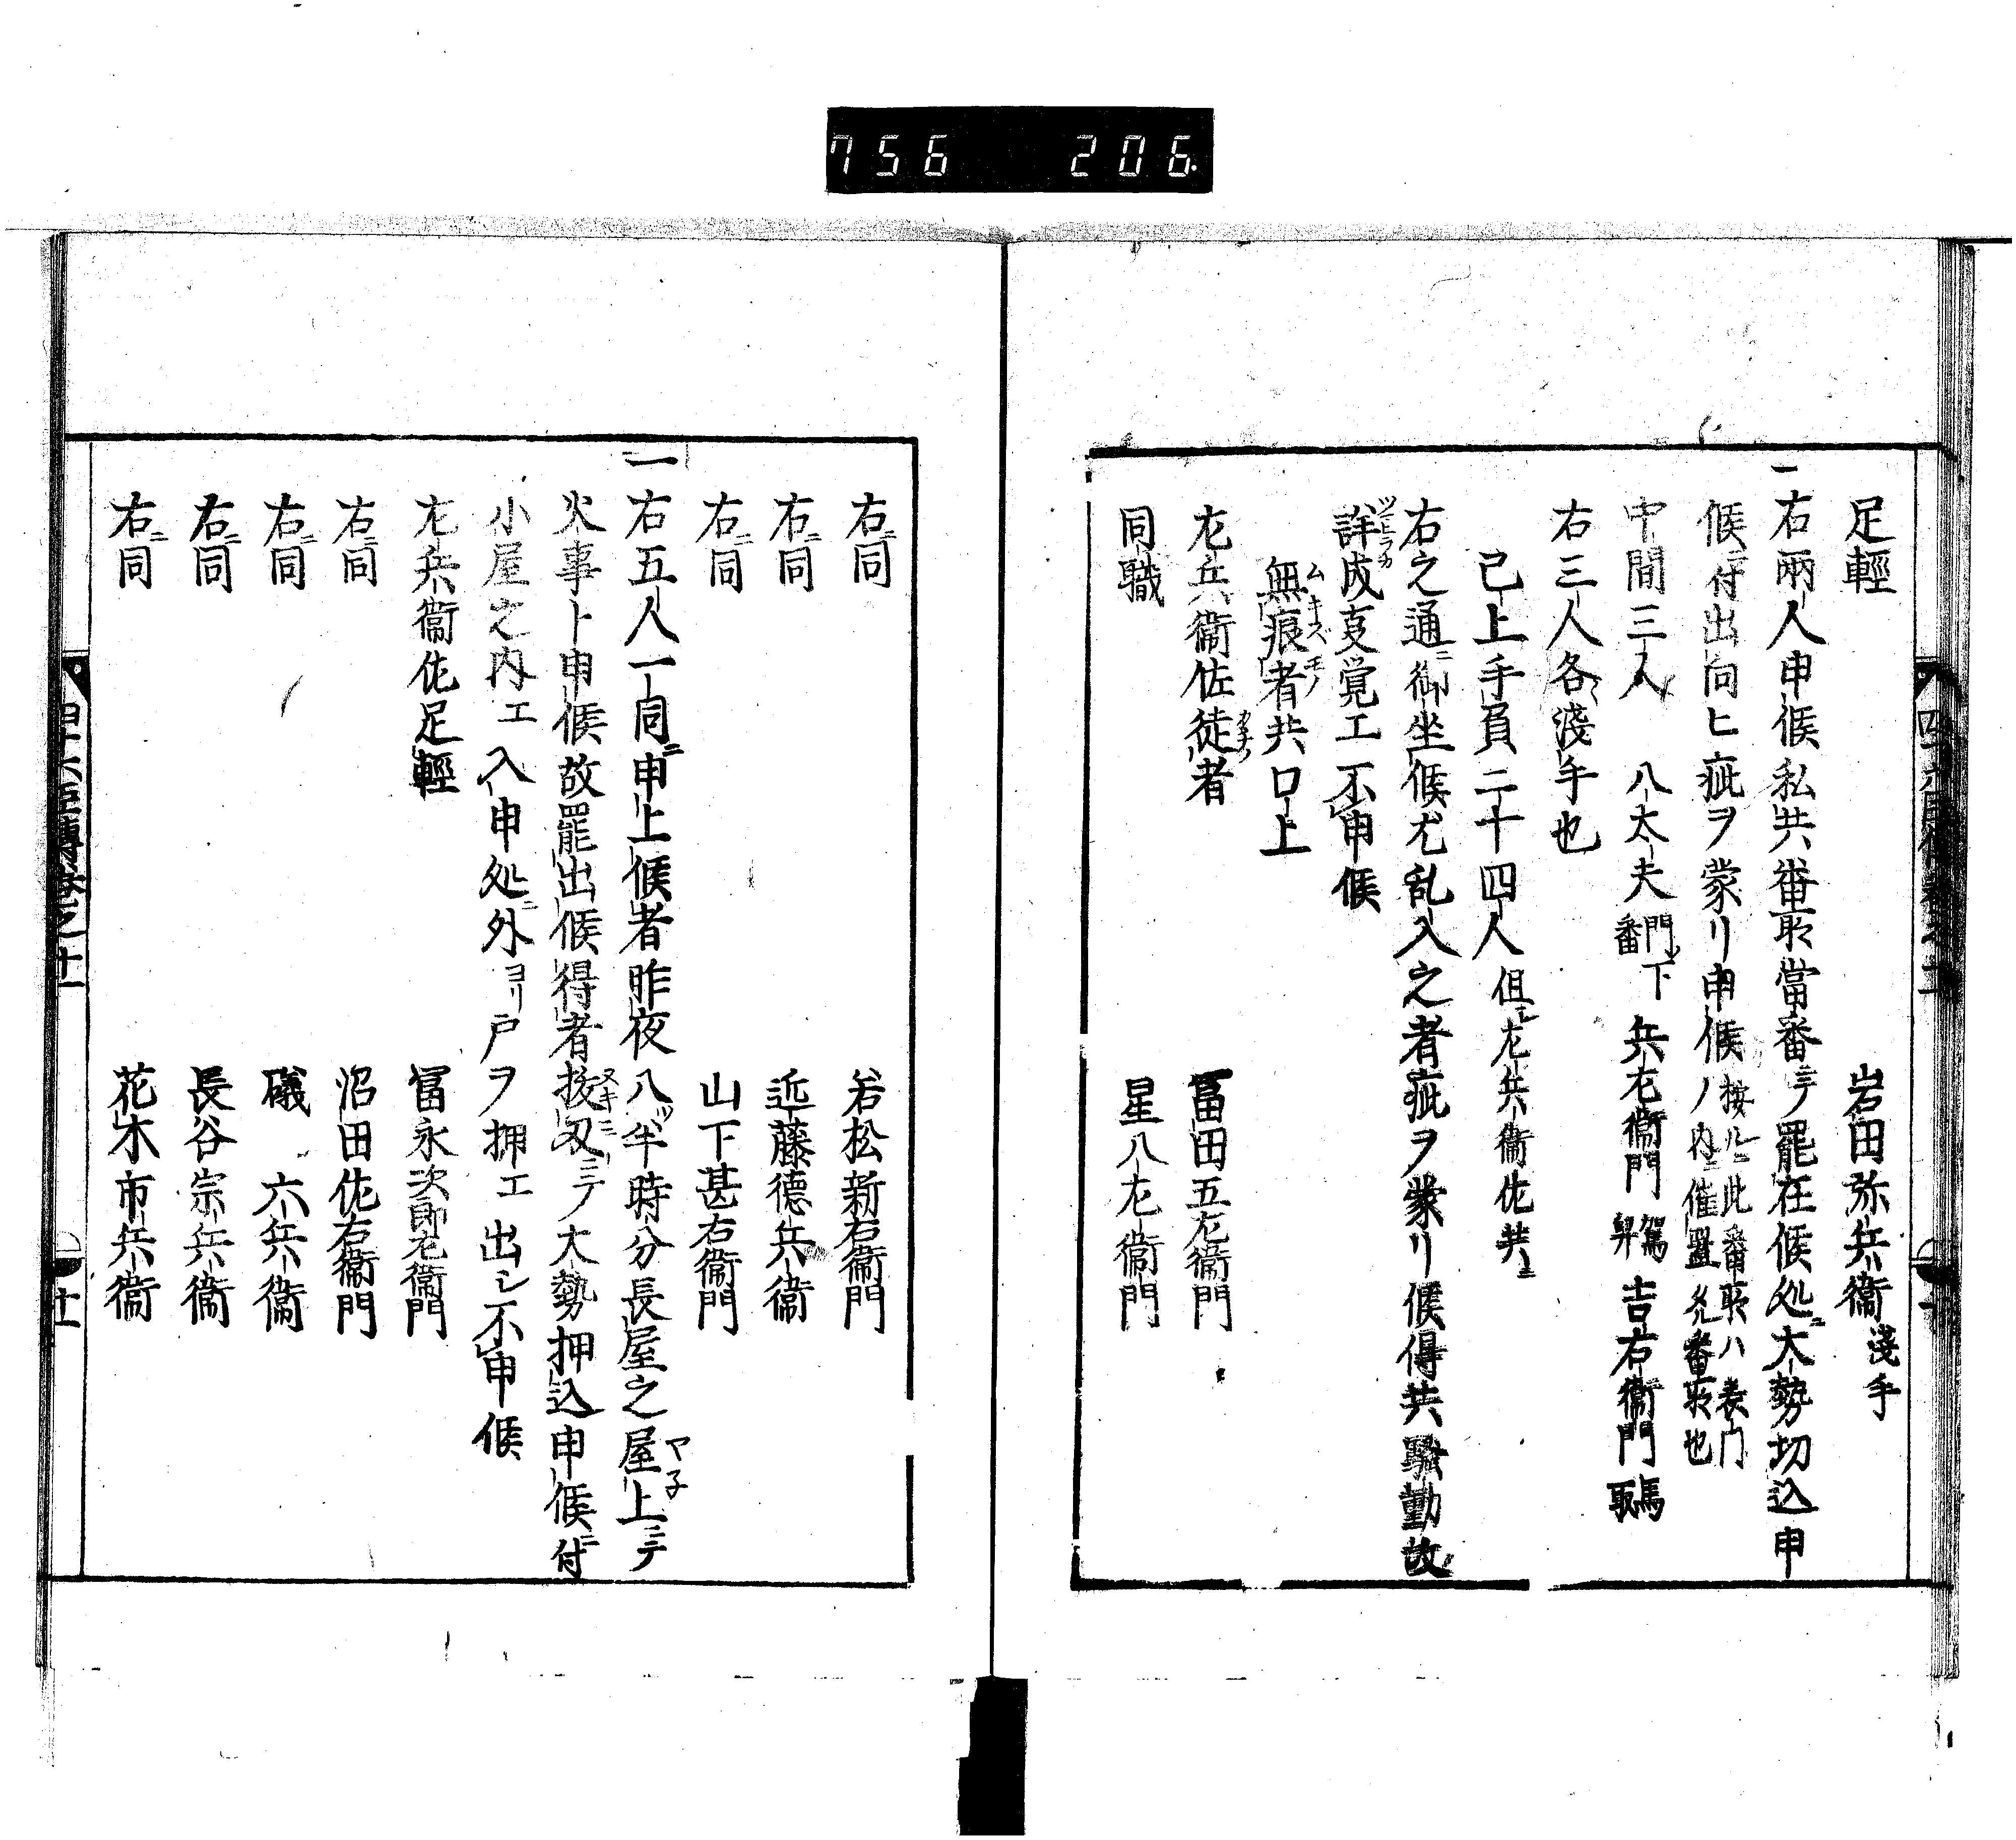 756 206
足輕 岩田弥兵衞 淺手
一右兩人申候私共番所當番ニテ罷在候処ニ大勢切込申
候ニ付出向ヒ疵ヲ蒙リ申候 按ルニ此番所ハ表門
ノ内ニ催置ク番所也
中間三人 八太夫 門番 下 兵左衞門 駕舁 吉右衞門 馬取
右三人各淺手也
已上手負二十四人 但シ左兵衞佐共ニ
右之通ニ御坐候尤乱入之者疵ヲ蒙リ候得共騒動故
詳成叓覚エ不申候
無痕者共口上
左兵衞佐徒者 冨田五左衞門
同職 星八左衞門
右ニ同 若松新右衞門
右ニ同 近藤德兵衞
右ニ同 山下甚右衞門
一右五人一同ニ申上候者昨夜八ツ半時分長屋之屋上ニテ
火事ト申候故罷出候得者拔刄ニテ大勢押込申候ニ付
小屋之内エ入申処ニ外ヨリ戸ヲ押エ出シ不申候
左兵衞佐足輕 冨永次郎左衞門
右ニ同 沼田佐右衞門
右ニ同 礒 六兵衞
右ニ同 長谷宗兵衞
右ニ同 花木市兵衞
四十六臣傳卷之十一 十一